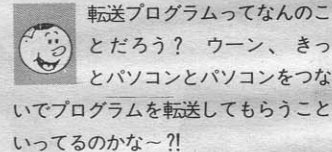 転送プログラムってなんのこ
とだろう？　ウーン、きっ
とパソコンとパソコンをつな
いでプログラムを転送してもらうこと
いってるのかな～?!